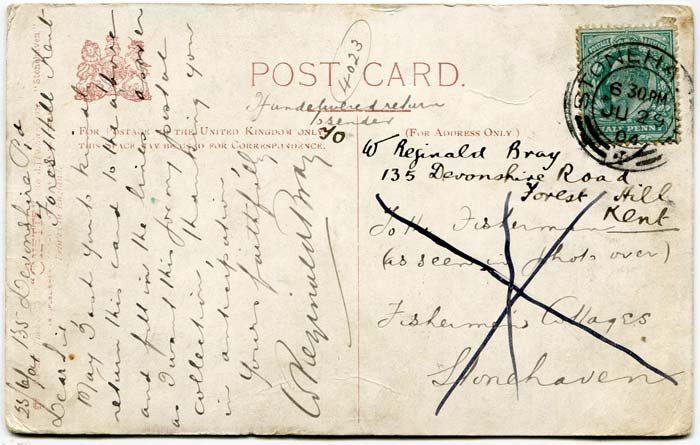 POST CARD.
4023
If undelivered return
to sender
FOR POSTAGE IN THE UNITED KINGDOM ONLY,
THIS SPACE MAY BE USED FOR CORRESPONDENCE.
(FOR ADDRESS ONLY.)
To
W Reginald Bray
135 Devonshire Road
Forest Hill
Kent
To the Fisherman
(as seen in photo over)
Fisherman's Cottages
Stonehaven
STONEHAVEN
6 30 PM
JU 25
04
HALF PENNY
135 Devonshire Rd
Forest Hill Kent
Dear Sir
May I ask you to kindly
return this card to the above
and fill in the line
as I want this for my postal
collection, thanking you
in anticipation
Yours faithfully
W Reginald Bray
"Stonehaven"